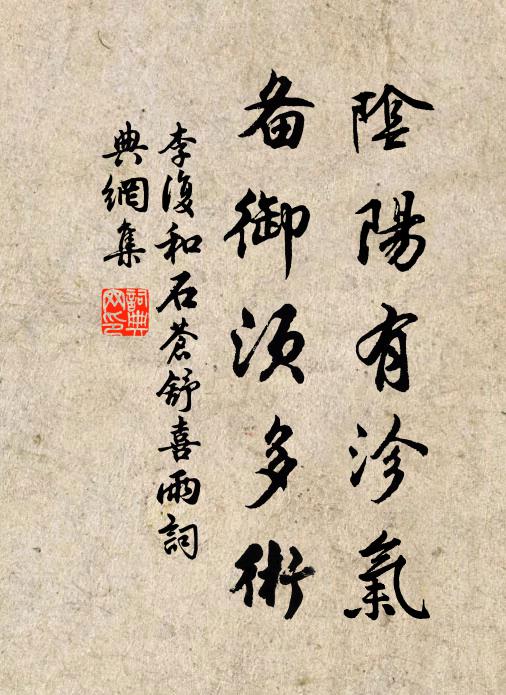 陰陽有沴氣
备御須多術
李復和石蒼舒喜雨詞
典網集
詞典網印